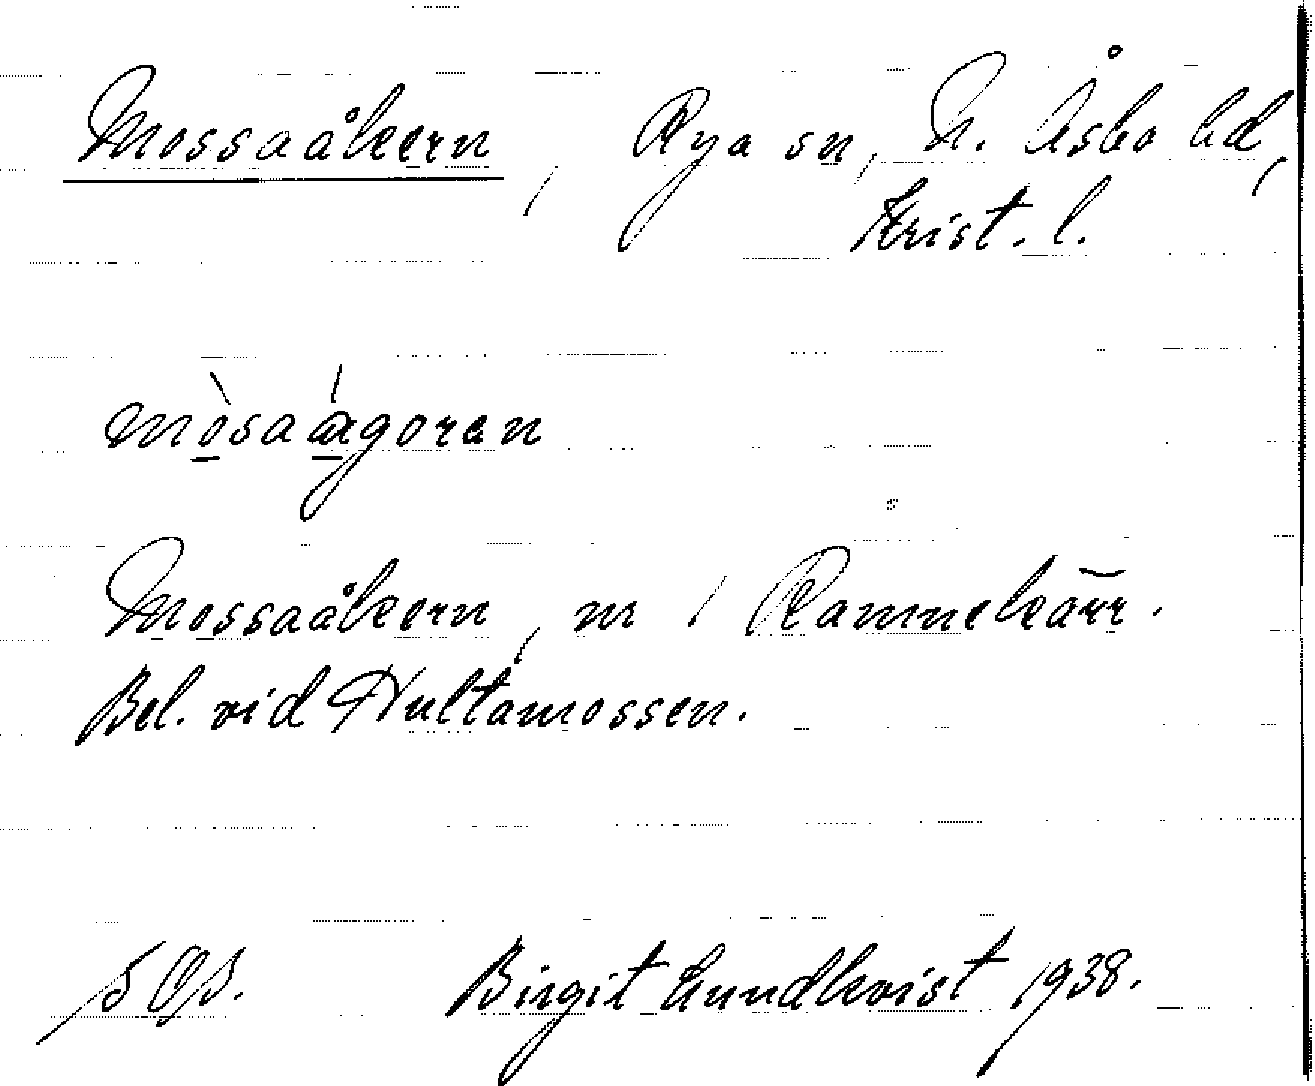 Mossaåkern, Rya sn, N. Åsbo hd,
Krist. l.
mòsaágorən
Mossaåkern, nr 1 Rammekärr.
Bel. vid Hultamossen.
Birgit Lundkvist 1938.